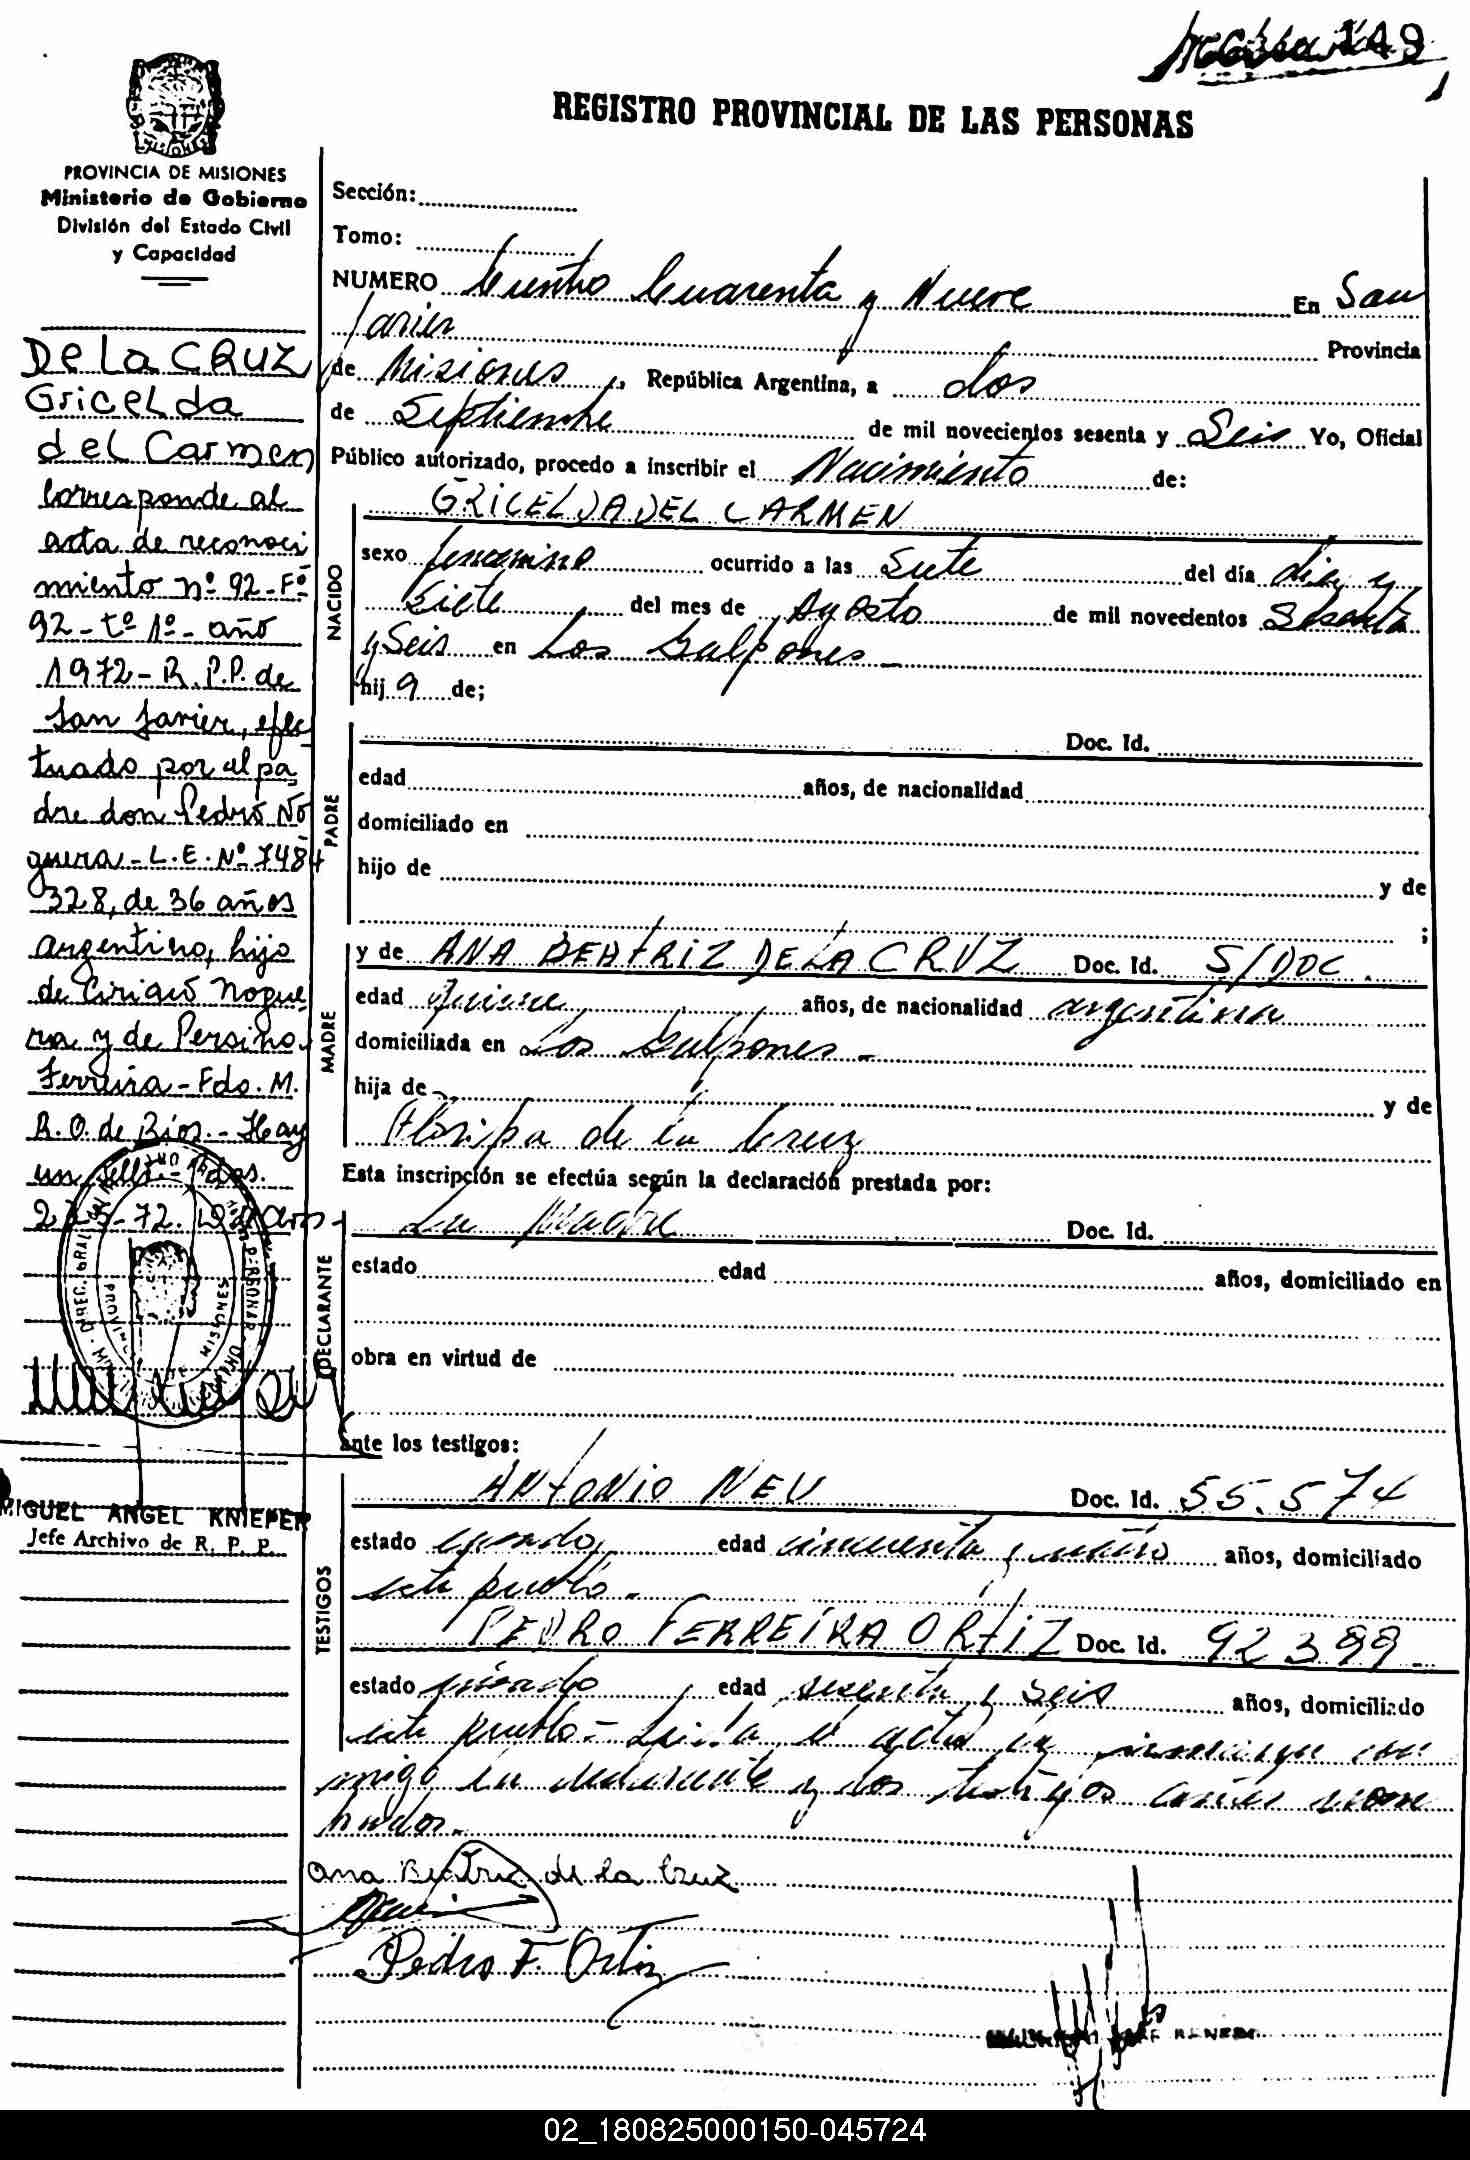 149
REGISTRO PROVINCIAL DE LAS PERSONAS
PROVINCIA DE MISIONES
Ministerio de Gobierno
División del Estado Civil
y Capacidad
De la CRUZ
Gricelda
del Carmen
Corresponde al
acta de reconoci
miento nº 92-Fº
92-tº 1º-año
1972-R.P.P. de
San Javier, efec
tuado por el pa
dre don Pedro No
guera-L.E.Nº 7484
328, de 36 años
argentino, hijo
de Ciriaco Nogue
ra y de
Ferreira-Fdo. M.
R.O. de Ríos.-Hay
un sello-Pdas.
72.
MIGUEL ANGEL KNIEPER
Jefe Archivo de R. P. P.
Sección:
Tomo:
NUMERO Ciento Cuarenta y Nueve En San
Javier Provincia
de Misiones, República Argentina, a dos
de Septiembre de mil novecientos sesenta y Seis Yo, Oficial
Público autorizado, procedo a inscribir el Nacimiento de:
NACIDO
GRICELDA DEL CARMEN
sexo femenino ocurrido a las Siete del día diez y
Siete del mes de Agosto de mil novecientos Sesenta
y Seis en Los Galpones-
hija de;
PADRE
Doc. Id.
edad años, de nacionalidad
domiciliado en
hijo de y de
;
MADRE
y de ANA BEATRIZ DE LA CRUZ Doc. Id. S/DOC.
edad Quince años, de nacionalidad argentina
domiciliada en Los Galpones-
hija de - y de
Floripa de la Cruz
Esta inscripción se efectúa según la declaración prestada por:
DECLARANTE
La Madre Doc. Id.
estado edad años, domiciliado en
obra en virtud de
ante los testigos:
TESTIGOS
ANTONIO NEU Doc. Id. 55.574
estado casado edad cincuenta y cuatro años, domiciliado
este pueblo-
PEDRO FERREIRA ORTIZ Doc. Id. 92399-
estado casado edad sesenta y seis años, domiciliado
este pueblo-Leída el acta la firman con
migo la declarante y los testigos antes nom
brados.-
Ana Beatriz de la Cruz
Pedro F. Ortiz
02_180825000150-045724